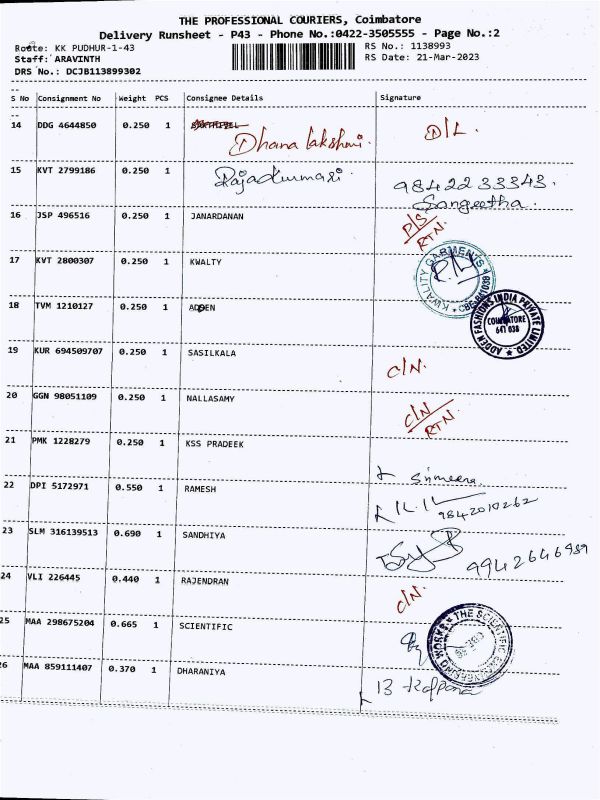 THE PROFESSIONAL COURIERS, Coimbatore
Delivery Runsheet - P43 - Phone No.:0422-3505555 - Page No.:2
Route: KK PUDHUR-1-43 RS No.: 1138993
Staff: ARAVINTH RS Date: 21-Mar-2023
DRS No.: DCJB113899302
S No Consignment No Weight PCS Consignee Details Signature
14 DDG 4644850 0.250 1 Dhana lakshmi. D/L.
15 KVT 2799186 0.250 1 98422 33343.
Sangeetha.
16 JSP 496516 0.250 1 JANARDANAN D/S
RTN.
17 KVT 2800307 0.250 1 KWALTY KWALITY GARMENTS
18 TVM 1210127 0.250 1 ADDEN ADDEN FASHIONS INDIA PRIVATE LIMITED
COIMBATORE
641 038
19 KUR 694509707 0.250 1 SASILKALA C/N.
20 GGN 98051109 0.250 1 NALLASAMY C/N
RTN.
21 PMK 1228279 0.250 1 KSS PRADEEK
22 DPI 5172971 0.550 1 RAMESH 9842010262
23 SLM 316139513 0.690 1 SANDHIYA 9942646989
24 VLI 226445 0.440 1 RAJENDRAN C/N.
25 MAA 298675204 0.665 1 SCIENTIFIC THE SCIENTIFIC ENGINEERING WORKS
26 MAA 859111407 0.370 1 DHARANIYA Kalpana